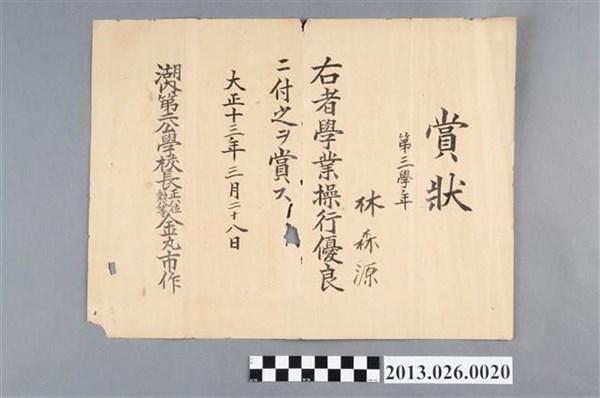 賞狀
第三學年
林森源
右者學業操行優良
ニ付之ヲ賞ス
大正十三年三月二十八日
湖內第公學校長金丸市作
2013.026.0020